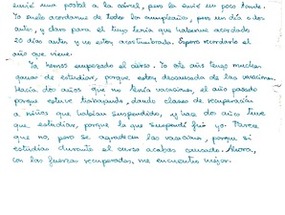 envié una postal a la cárcel, pero la envié un poco tarde.
Yo suelo acordarme de todos los cumpleaños, pero un día o dos
antes, y claro para el tuyo tenía que haberme acordado
20 días antes y no estoy acostumbrada. Espero recordarlo el
año que viene.
Ya hemos empezado el curso. Yo este año tengo muchas
ganas de estudiar, porque estoy descansada de las vacaciones.
Hacía dos años que no tenía vacaciones, el año pasado
porque estuve trabajando, dando clases de recuperación
a niños que habían suspendido, y hace dos años tuve
que estudiar, porque la que suspendí fui yo. Parece
que no, pero se agradecen las vacaciones, porque si
estudias durante el curso acabas cansado. Ahora,
con las fuerzas recuperadas, me encuentro mejor.